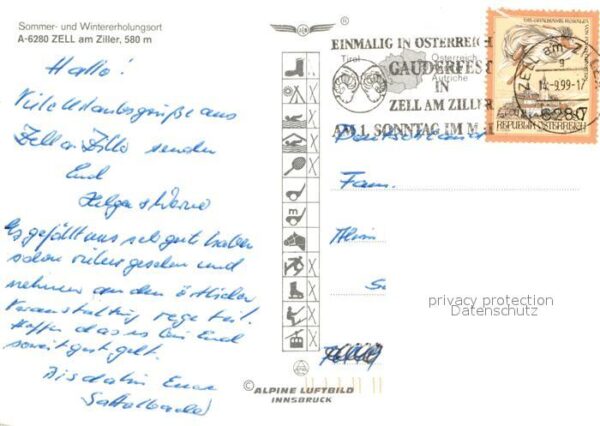 Sommer- und Wintererholungsort
A-6280 ZELL am Ziller, 580 m
Hallo!
Viele Urlaubsgrüße aus
Zell a. Ziller senden
Euch
Helga +
Es gefällt uns sehr gut haben
schon vieles gesehen und
nehmen an den örtlichen
Veranstaltung rege teil.
Hoffen das es bei Euch
soweit gut geht.
Bis dahin Eure
EINMALIG IN ÖSTERREICH
GAUDERFEST
IN
ZELL AM ZILLER
AM 1. SONNTAG IM M
Tirol
Österreich
Autriche
ZELL am ZILLER
-9.99-17
6280
REPUBLIK ÖSTERREICH
Deutschland
Fam.
privacy protection
Datenschutz
m
© ALPINE LUFTBILD
INNSBRUCK